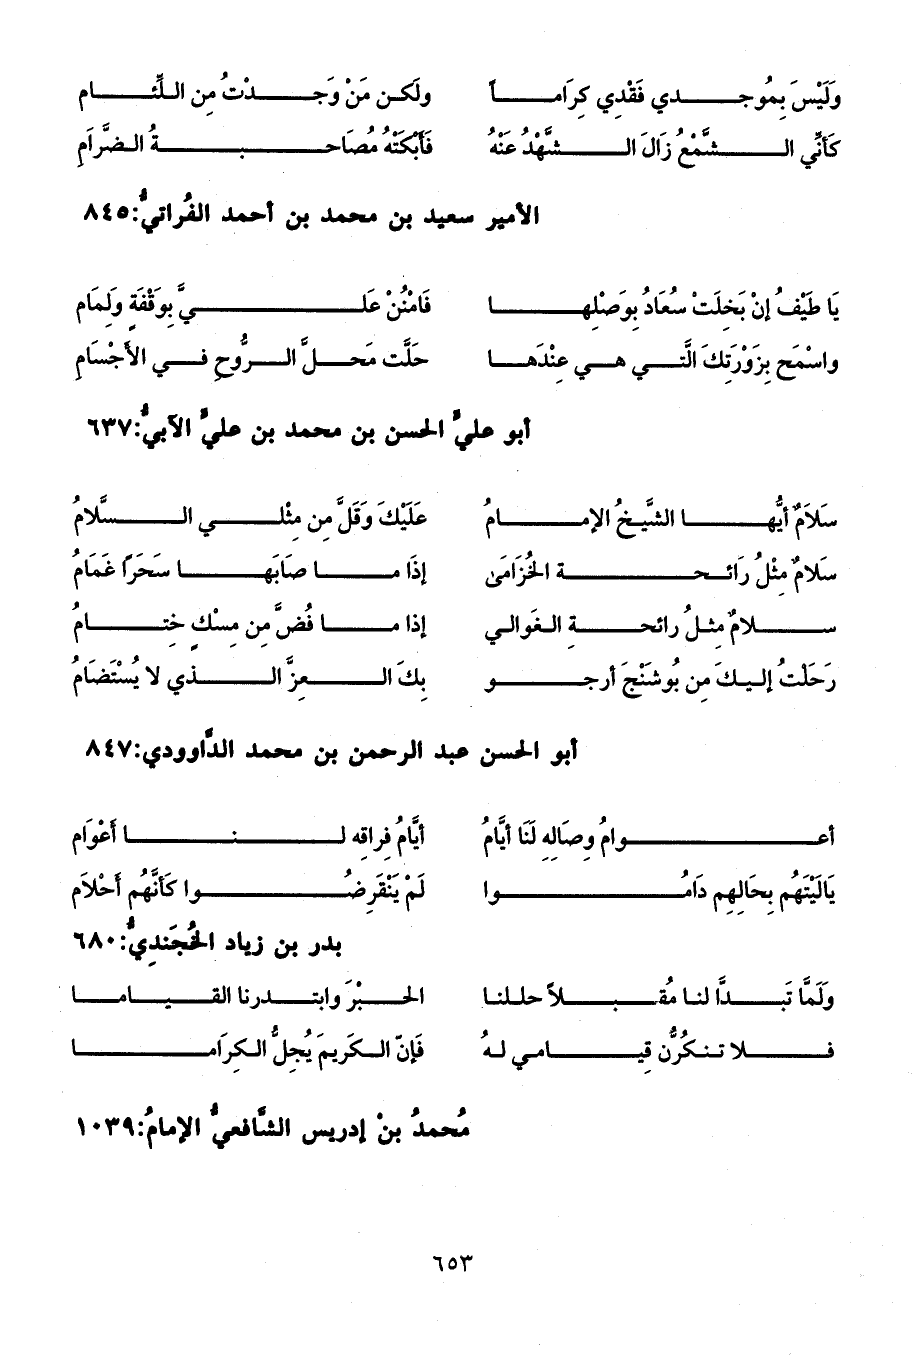 وَلَيْسَ بِمُوجِدي فَقْدِي كِرَاماً ولَكـن مَنْ وَجَدْتُ مِن اللِّئَام
كَأَنِّي الشَّمْعُ زَالَ الشَّهْدُ عَنْهُ فَأَبْكَتْهُ مُصَاحبةُ الضَّرَامِ
الأمير سعيد بن محمد بن أحمد الفُراتيُّ:٨٤٥
يَا طَيْفُ إنْ بَخِلَتْ سُعَادُ بِوَصْلِها فَامْنُنْ عَلَيَّ بِوَقْفَةٍ وَلِمَام
واسْمَح بِزَوْرَتِكَ الَّتي هي عِنْدَها حَلَّت مَحلَّ الرُّوحِ في الأَجْسَامِ
أبو عليٍّ الحسن بن محمد بن عليٍّ الآبيُّ:٦٣٧
سَلاَمٌ أيُّها الشَّيخُ الإمامُ عَلَيْكَ وَقَلَّ مِن مِثْلي السَّلاَمُ
سَلامٌ مِثْلُ رَائحة الخُزَامَىٰ إذَا ما صَابَها سَحَرًا غَمَامُ
سلامٌ مِثلُ رائحة الغَوالي إذا ما فُضَّ مِن مِسْكٍ خِتامُ
رَحَلْتُ إليكَ مِن بُوشَنْجَ أرجو بِكَ العِزَّ الذي لا يُسْتَضَامُ
أبو الحسن عبد الرحمن بن محمد الدَّاوودي:٨٤٧
أعوامُ وِصَالِهِ لَنَا أيَّامُ أيَّامُ فِراقِه لنا أَعْوَام
يَالَيْتَهُم بِحَالِهِم دَامُوا لَمْ يَنْقَرِضُوا كَأَنَّهُم أَحْلاَم
بدر بن زياد الخُجَنديُّ:٦٨٠
وَلَمَّا تَبدَّا لنا مُقبلاً حللنا الحبْرَ وابتدرنا القيامـا
فلا تنكرُنَّ قِيامي لهُ فَإنّ الكَريمَ يُجِلُّ الكِرَاما
مُحمدُ بنْ إدريس الشَّافعيُّ الإمامُ:١٠٣٩
٦٥٣